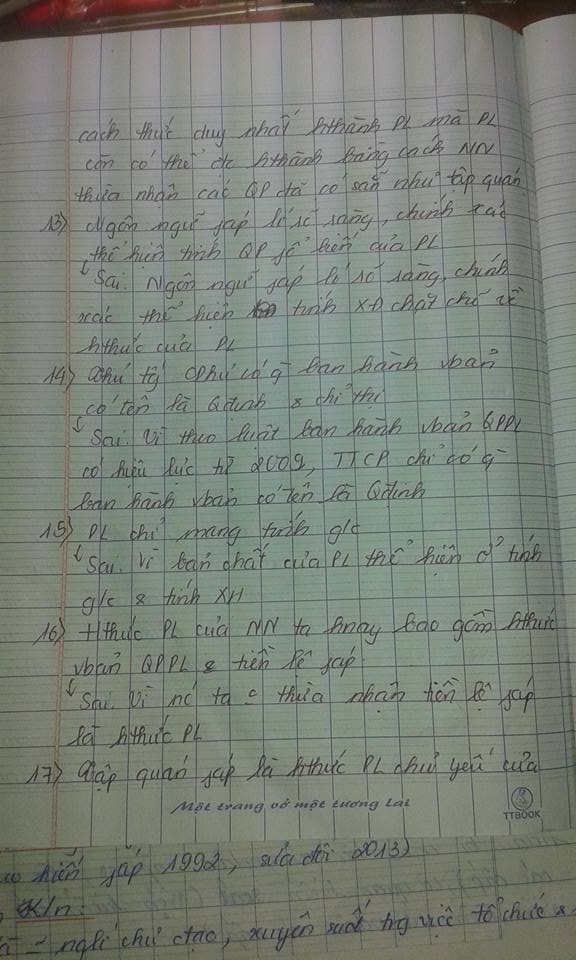 cách thức duy nhất hthành PL mà PL
còn có thể đc hthành bằng cách NN
thừa nhận các QP đã có sẵn như tập quán
13) Ngôn ngữ fáp lí rõ ràng, chính xác
thể hiện tính QP fổ biến của PL
↳ Sai. Ngôn ngữ fáp lí rõ ràng, chính
xác thể hiện tính XĐ chặt chẽ về
hthức của PL
14) Thủ tg Cphủ có q ban hành vbản
có tên là Qđịnh & chỉ thị
↳ Sai. Vì theo luật ban hành vbản QPPL
có hiệu lực từ 2009, TTCP chỉ có q
ban hành vbản có tên là Qđịnh
15) PL chỉ mang tính g/c
↳ Sai. Vì bản chất của PL thể hiện ở tính
g/c & tính XH
16) Hthức PL của NN ta hnay bao gồm hthức
vbản QPPL & tiền lệ fáp
↳ Sai. Vì nc ta thừa nhận tiền lệ fáp
là hthức PL
17) Tập quán fáp là hthức PL chủ yếu của
Một trang vở một tương lai
TTBOOK
hiến fáp 1992, sửa đổi 2013)
K/n:
nghĩ chủ đạo, xuyên suốt trg việc tổ chức &